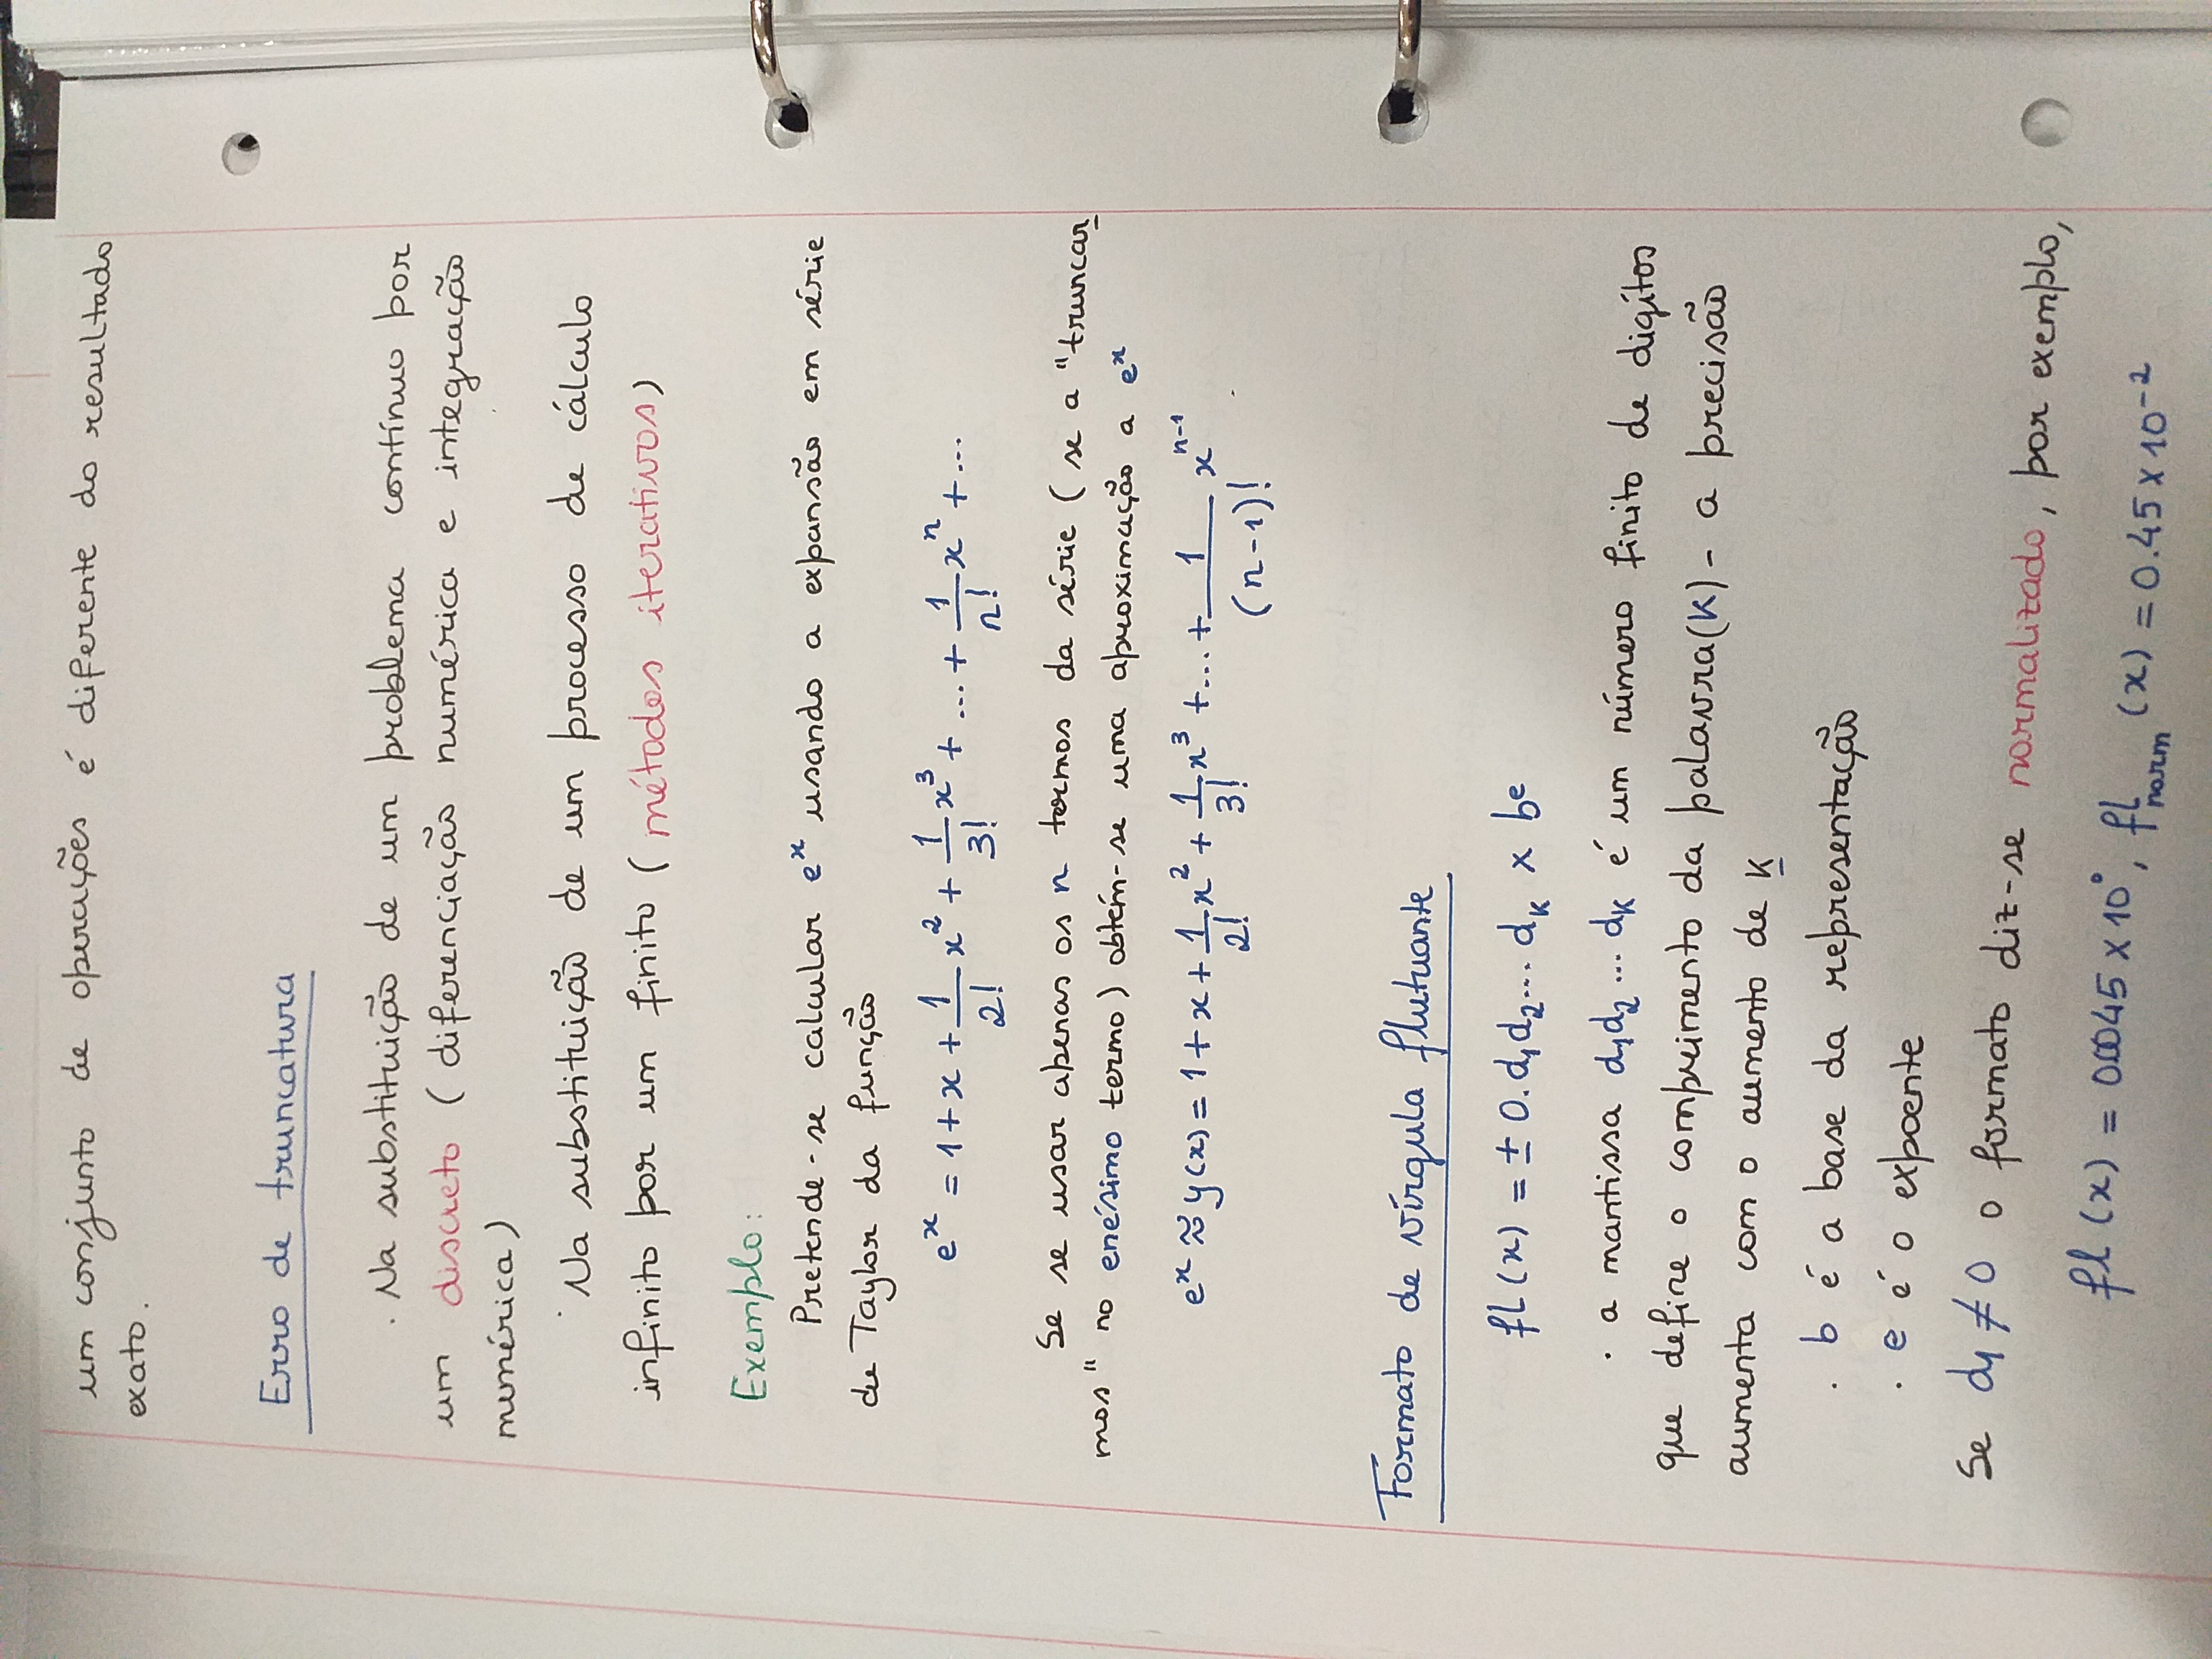 um conjunto de operações é diferente do resultado
exato.
Erro de truncatura
. Na substituição de um problema contínuo por
um discreto (diferenciação numérica e integração
numérica)
. Na substituição de um processo de cálculo
infinito por um finito (métodos iterativos)
Exemplo:
Pretende-se calcular eˣ usando a expansão em série
de Taylor da função
eˣ = 1 + x + 1/2! x² + 1/3! x³ + ... + 1/n! xⁿ + ...
Se se usar apenas os n termos da série (se a "truncar
mos" no enésimo termo) obtém-se uma aproximação a eˣ
eˣ ≈ y(x) = 1 + x + 1/2! x² + 1/3! x³ + ... + 1/(n-1)! xⁿ⁻¹
Formato de vírgula flutuante
fl(x) = ± 0.d₁d₂... dₖ × bᵉ
. a mantissa d₁d₂ ... dₖ é um número finito de digítos
que define o comprimento da palavra(k) - a precisão
aumenta com o aumento de k
. b é a base da representação
. e é o expoente
Se d₁ ≠ 0 o formato diz-se normalizado, por exemplo,
fl(x) = 0.0045 × 10⁰, fl norm (x) = 0.45 × 10⁻²